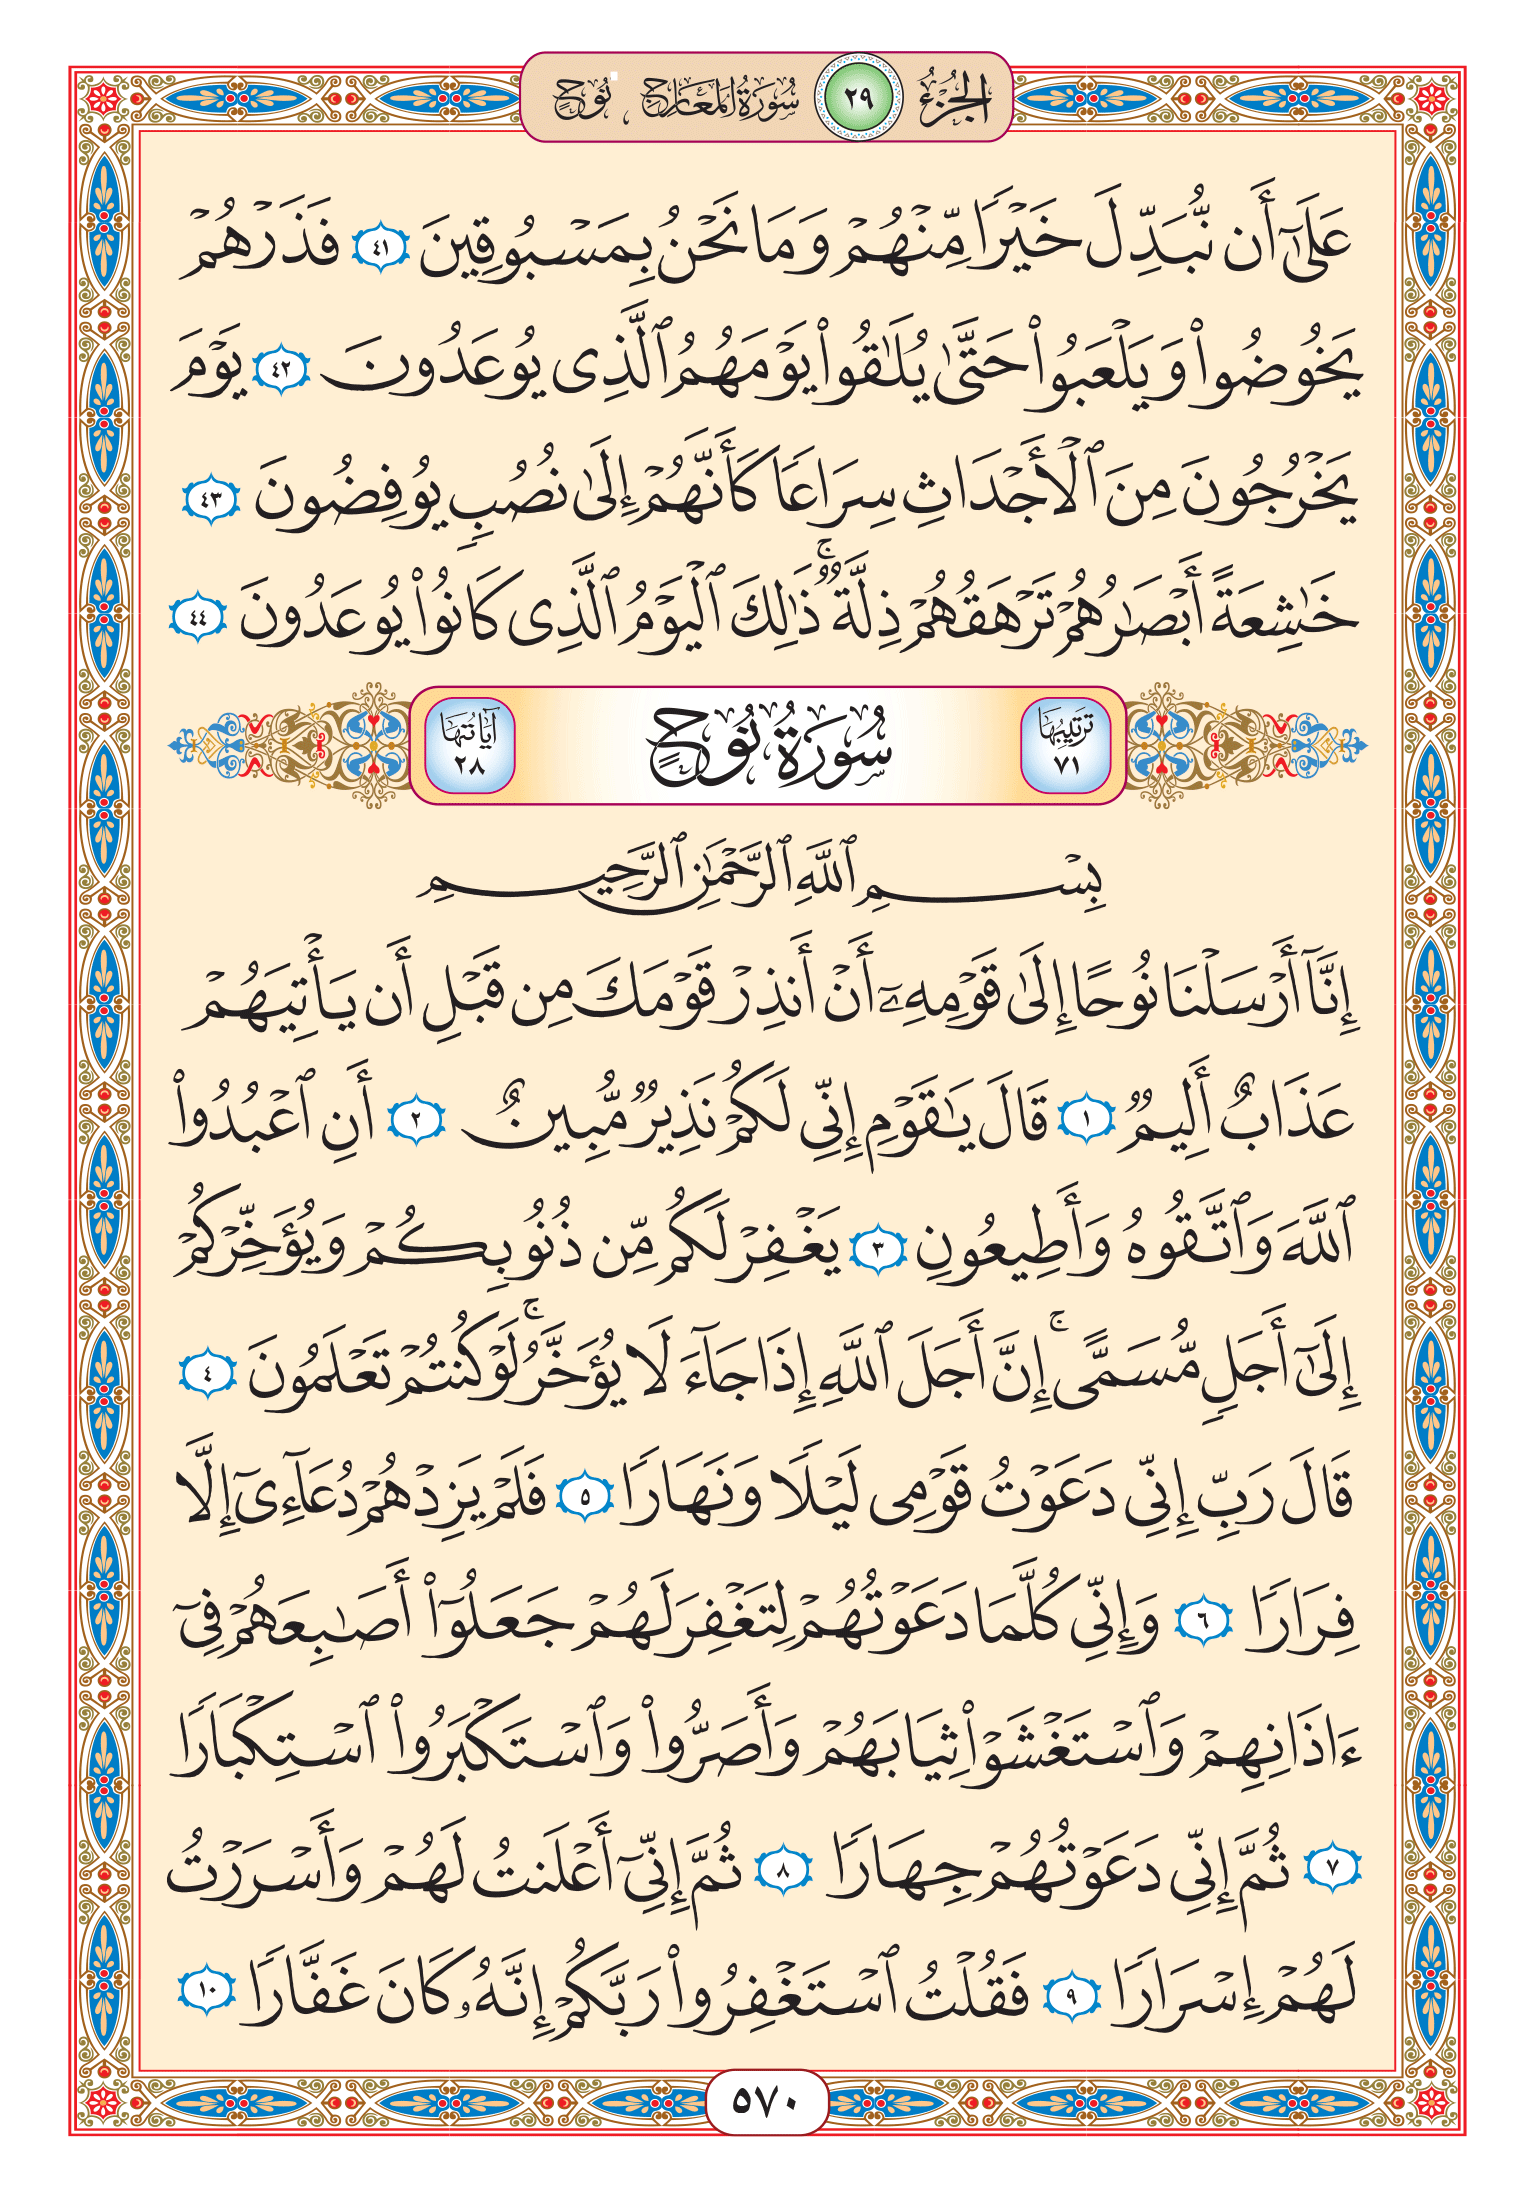 الجزء ٢٩ سورة المعارج ، نوح
عَلَىٰٓ أَن نُّبَدِّلَ خَيْرًا مِّنْهُمْ وَمَا نَحْنُ بِمَسْبُوقِينَ ٤١ فَذَرْهُمْ
يَخُوضُوا۟ وَيَلْعَبُوا۟ حَتَّىٰ يُلَـٰقُوا۟ يَوْمَهُمُ ٱلَّذِى يُوعَدُونَ ٤٢ يَوْمَ
يَخْرُجُونَ مِنَ ٱلْأَجْدَاثِ سِرَاعًا كَأَنَّهُمْ إِلَىٰ نُصُبٍ يُوفِضُونَ ٤٣
خَـٰشِعَةً أَبْصَـٰرُهُمْ تَرْهَقُهُمْ ذِلَّةٌ ۚ ذَٰلِكَ ٱلْيَوْمُ ٱلَّذِى كَانُوا۟ يُوعَدُونَ ٤٤
ترتيبها ٧١ سُورَةُ نُوحٍ آياتها ٢٨
بِسْمِ ٱللَّهِ ٱلرَّحْمَـٰنِ ٱلرَّحِيمِ
إِنَّآ أَرْسَلْنَا نُوحًا إِلَىٰ قَوْمِهِۦٓ أَنْ أَنذِرْ قَوْمَكَ مِن قَبْلِ أَن يَأْتِيَهُمْ
عَذَابٌ أَلِيمٌ ١ قَالَ يَـٰقَوْمِ إِنِّى لَكُمْ نَذِيرٌ مُّبِينٌ ٢ أَنِ ٱعْبُدُوا۟
ٱللَّهَ وَٱتَّقُوهُ وَأَطِيعُونِ ٣ يَغْفِرْ لَكُم مِّن ذُنُوبِكُمْ وَيُؤَخِّرْكُمْ
إِلَىٰٓ أَجَلٍ مُّسَمًّى ۚ إِنَّ أَجَلَ ٱللَّهِ إِذَا جَآءَ لَا يُؤَخَّرُ ۚ لَوْ كُنتُمْ تَعْلَمُونَ ٤
قَالَ رَبِّ إِنِّى دَعَوْتُ قَوْمِى لَيْلًا وَنَهَارًا ٥ فَلَمْ يَزِدْهُمْ دُعَآءِىٓ إِلَّا
فِرَارًا ٦ وَإِنِّى كُلَّمَا دَعَوْتُهُمْ لِتَغْفِرَ لَهُمْ جَعَلُوٓا۟ أَصَـٰبِعَهُمْ فِىٓ
ءَاذَانِهِمْ وَٱسْتَغْشَوْا۟ ثِيَابَهُمْ وَأَصَرُّوا۟ وَٱسْتَكْبَرُوا۟ ٱسْتِكْبَارًا
٧ ثُمَّ إِنِّى دَعَوْتُهُمْ جِهَارًا ٨ ثُمَّ إِنِّىٓ أَعْلَنتُ لَهُمْ وَأَسْرَرْتُ
لَهُمْ إِسْرَارًا ٩ فَقُلْتُ ٱسْتَغْفِرُوا۟ رَبَّكُمْ إِنَّهُۥ كَانَ غَفَّارًا ١٠
٥٧٠